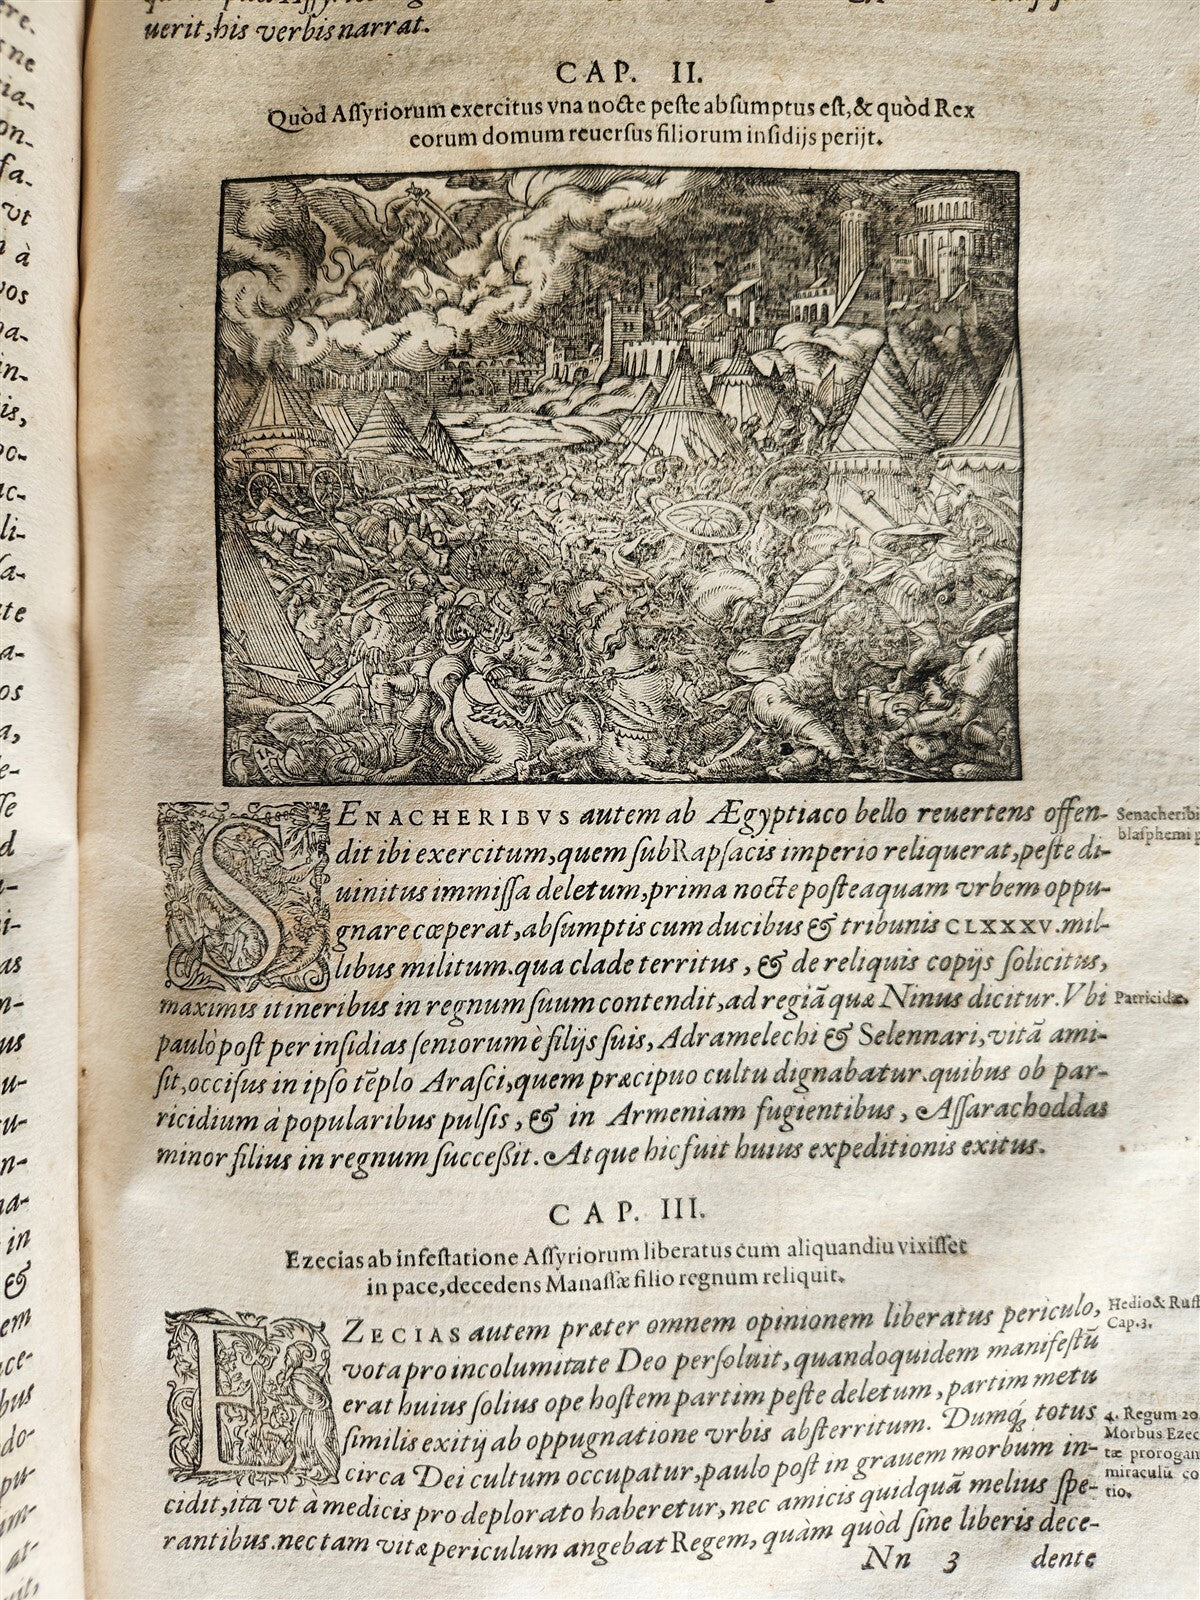 uerit, his verbis narrat.
CAP. II.
Quòd Aſſyriorum exercitus vna nocte peſte abſumptus eſt, & quòd Rex
eorum domum reuerſus filiorum inſidijs perijt.
SENACHERIBVS autem ab Ægyptiaco bello reuertens offen-
dit ibi exercitum, quem ſub Rapſacis imperio reliquerat, peſte di-
uinitus immiſſa deletum, prima nocte poſteaquam vrbem oppu-
gnare cœperat, abſumptis cum ducibus & tribunis CLXXXV. mil-
libus militum. qua clade territus, & de reliquis copijs ſolicitus,
maximis itineribus in regnum ſuum contendit, ad regiã quæ Ninus dicitur. Vbi
paulò poſt per inſidias ſeniorum è filijs ſuis, Adramelechi & Selennari, vitã ami-
ſit, occiſus in ipſo tẽplo Araſci, quem præcipuo cultu dignabatur. quibus ob par-
ricidium à popularibus pulſis, & in Armeniam fugientibus, Aſſarachoddas
minor filius in regnum ſucceßit. Atque hic fuit huius expeditionis exitus.
Senacheribi
blaſphemi p
Patricidæ.
CAP. III.
Ezecias ab infeſtatione Aſſyriorum liberatus cum aliquandiu vixiſſet
in pace, decedens Manaſſæ filio regnum reliquit.
EZECIAS autem præter omnem opinionem liberatus periculo,
vota pro incolumitate Deo perſoluit, quandoquidem manifeſtũ
erat huius ſolius ope hoſtem partim peſte deletum, partim metu
ſimilis exitij ab oppugnatione vrbis abſterritum. Dumq́; totus
circa Dei cultum occupatur, paulo poſt in grauem morbum in-
cidit, ita vt à medicis pro deplorato haberetur, nec amicis quidquã melius ſpe-
rantibus. nec tam vitæ periculum angebat Regem, quàm quòd ſine liberis dece-
Hedio & Ruff
Cap. 3.
4. Regum 20
Morbus Ezec
tæ prorogan
miraculũ co
tio.
Nn 3 dente